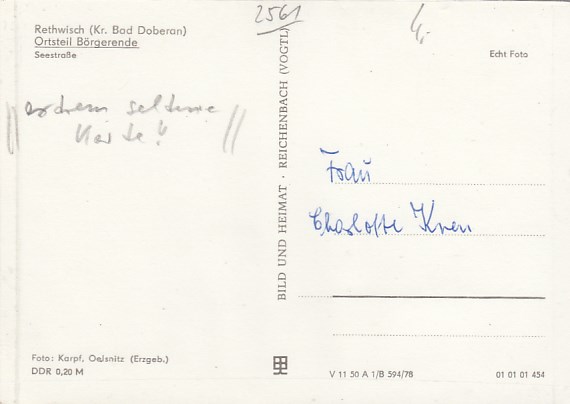 Rethwisch (Kr. Bad Doberan)
Ortsteil Börgerende
Seestraße
2561
4,-
Echt Foto
extrem seltene
Karte!
BILD UND HEIMAT · REICHENBACH (VOGTL)
Frau
Charlotte
Foto: Karpf, Oelsnitz (Erzgeb.)
DDR 0,20 M
V 11 50 A 1/B 594/78
01 01 01 454